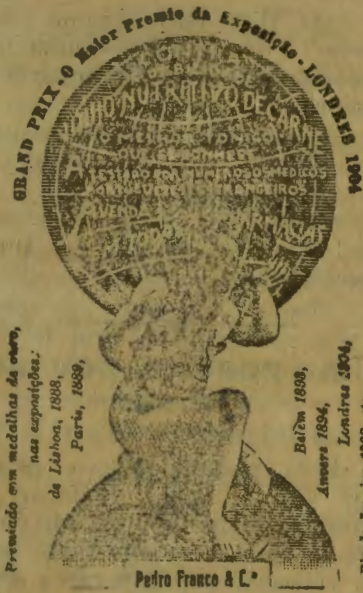 GRAND PRIX - O Maior Premio da Exposição - LONDRES 1904
CONTRA
A DEBILIDADE
VINHO NUTRITIVO DE CARNE
O MELHOR TONICO
QUE SE CONHECE
ATTESTADO POR NUMEROSOS MEDICOS
ESTRANGEIROS
Á VENDA PHARMACIAS
Premiado com medalhas de ouro,
nas exposições;
de Lisboa, 1888,
Paris, 1889,
Belem 1893,
Anvers 1894,
Londres 1904,
Pedro Franco & C.ª